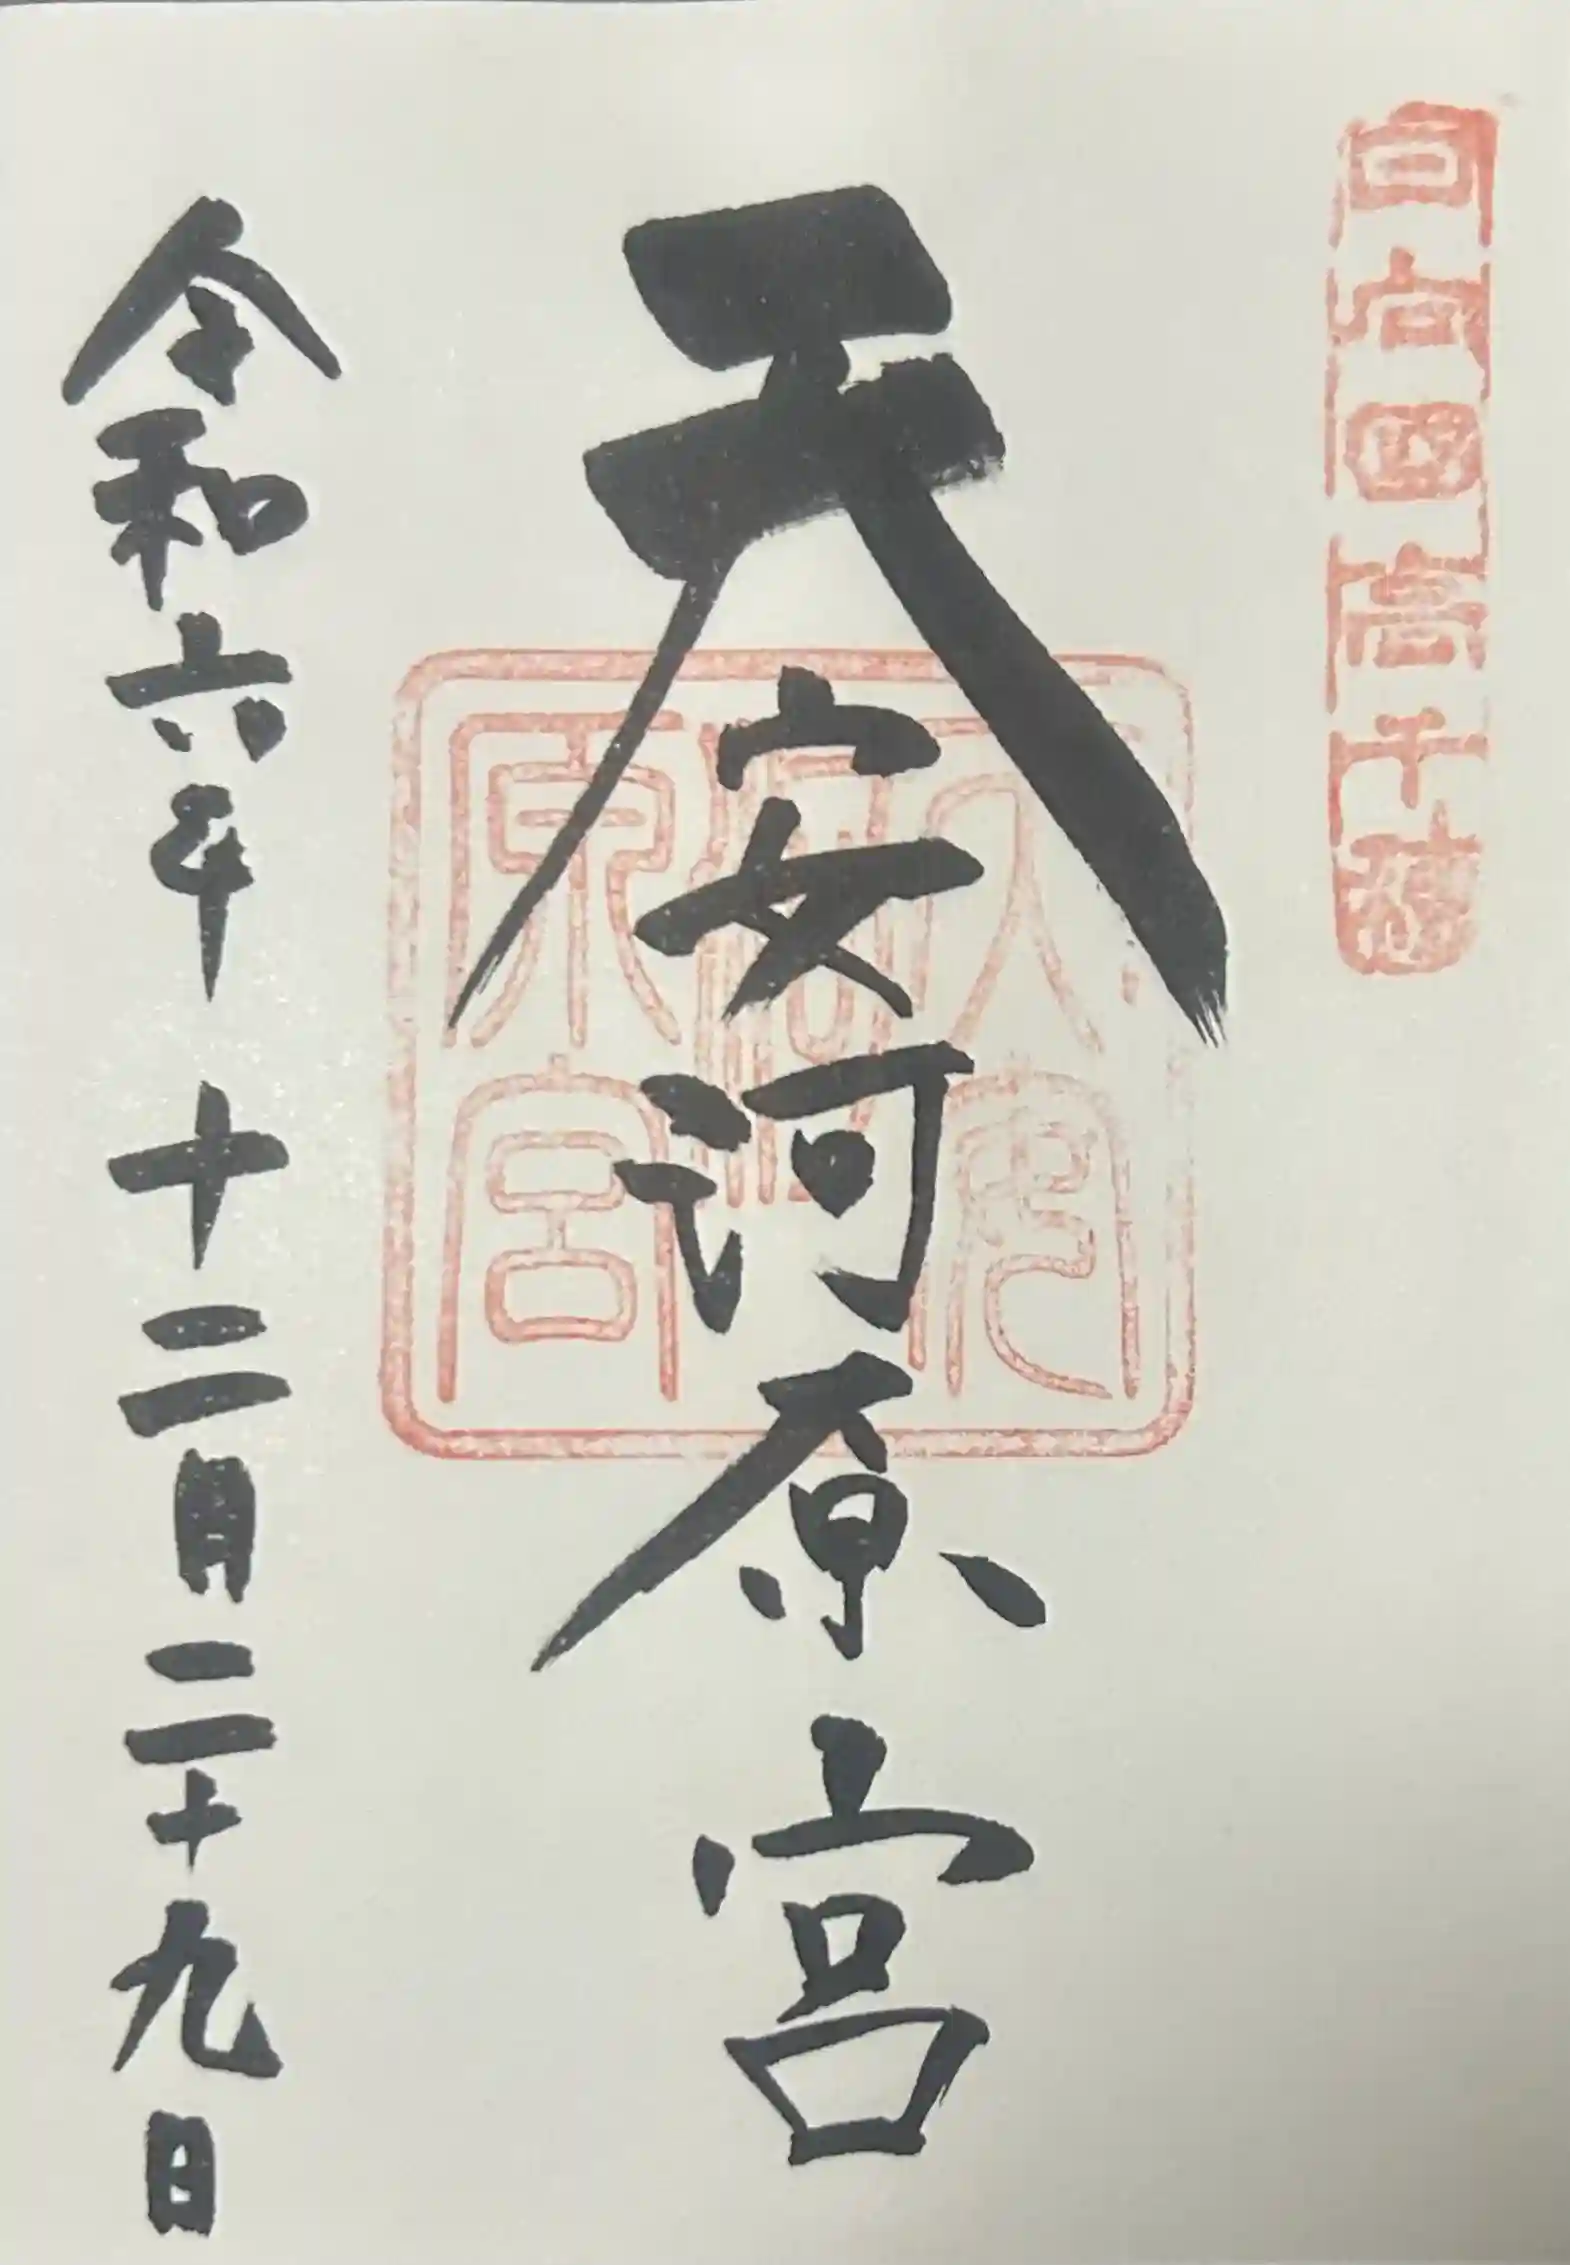 日向國高千穂
天安河原宮
天安河原宮
令和六年十二月二十九日